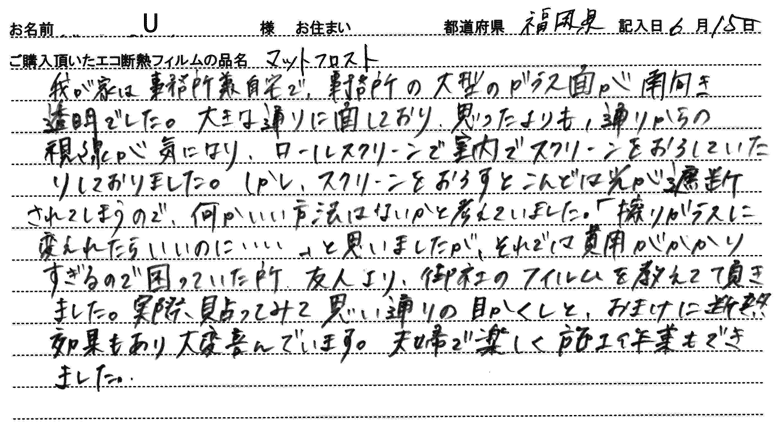 お名前 U 様 お住まい 都道府県 福岡県 記入日 6 月 15 日
ご購入頂いたエコ断熱フィルムの品名 マットフロスト
我が家は事務所兼自宅で、事務所の大型のガラス面が南向き
透明でした。大きな通りに面しており、思ったよりも、通りからの
視線が気になり、ロールスクリーンで室内でスクリーンをおろしていた
りしておりました。しかし、スクリーンをおろすとこんどは光が遮断
されてしまうので、何かいい方法はないかと考えていました。「擦りガラスに
変えれたらいいのに・・・・」と思いましたが、それでは費用がかかり
すぎるので困っていた所、友人より、御社のフィルムを教えて頂き
ました。実際、貼ってみて思い通りの目かくしと、おまけに断熱
効果もあり大変喜んでいます。夫婦で楽しく施工作業もでき
ました。